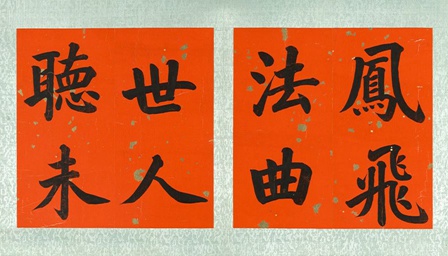 鳳飛
法曲
世人
聽未